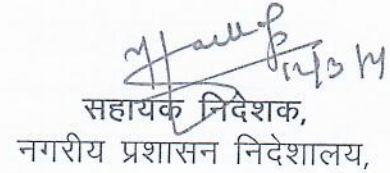 12/3/14
सहायक निदेशक,
नगरीय प्रशासन निदेशालय,